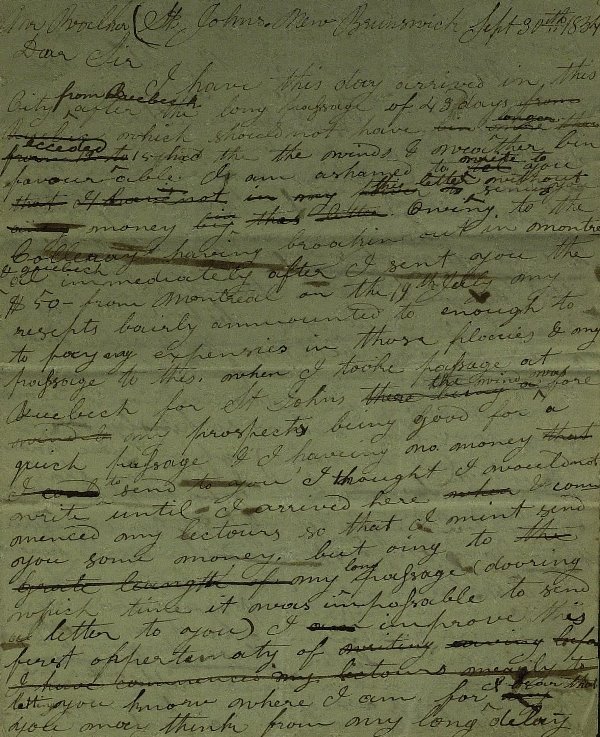 Mr Walker (St Johns. New Brunswick Sept 30th 1834
Dear Sir
I have this day arrived in this
City from Quebeck after the long passage of 43 days from
which should not have longer
acceded 15 had the the winds & weather bin
favourable. I am ashamed to write to you
that I have not in my this letter without sending you
money big this letter. Owing to the
Colleray having broakin out in Montreal
& Quebeck immediately after I sent you the
$50- from Montreal on the 19th July my
resepts bairly ammounted to enough to
to pay my expensies in those places & my
passage to this. when I tooke passage at
Quebeck for St Johns there being the wind was fore
wind & my prospects being good for a
quick passage & I having no money that
I could to send to you I thought I would not
write until I arrived here when I com
menced my lectours so that I mint send
you some money. but oing to the
grate length of my long passage (dooring
which time it was impossable to send
a letter to you) I am improve this
ferst oppertunaty of writing having
I have commenced my lectours mearly to
letting you know where I am for I fear that
you may think from my long delay